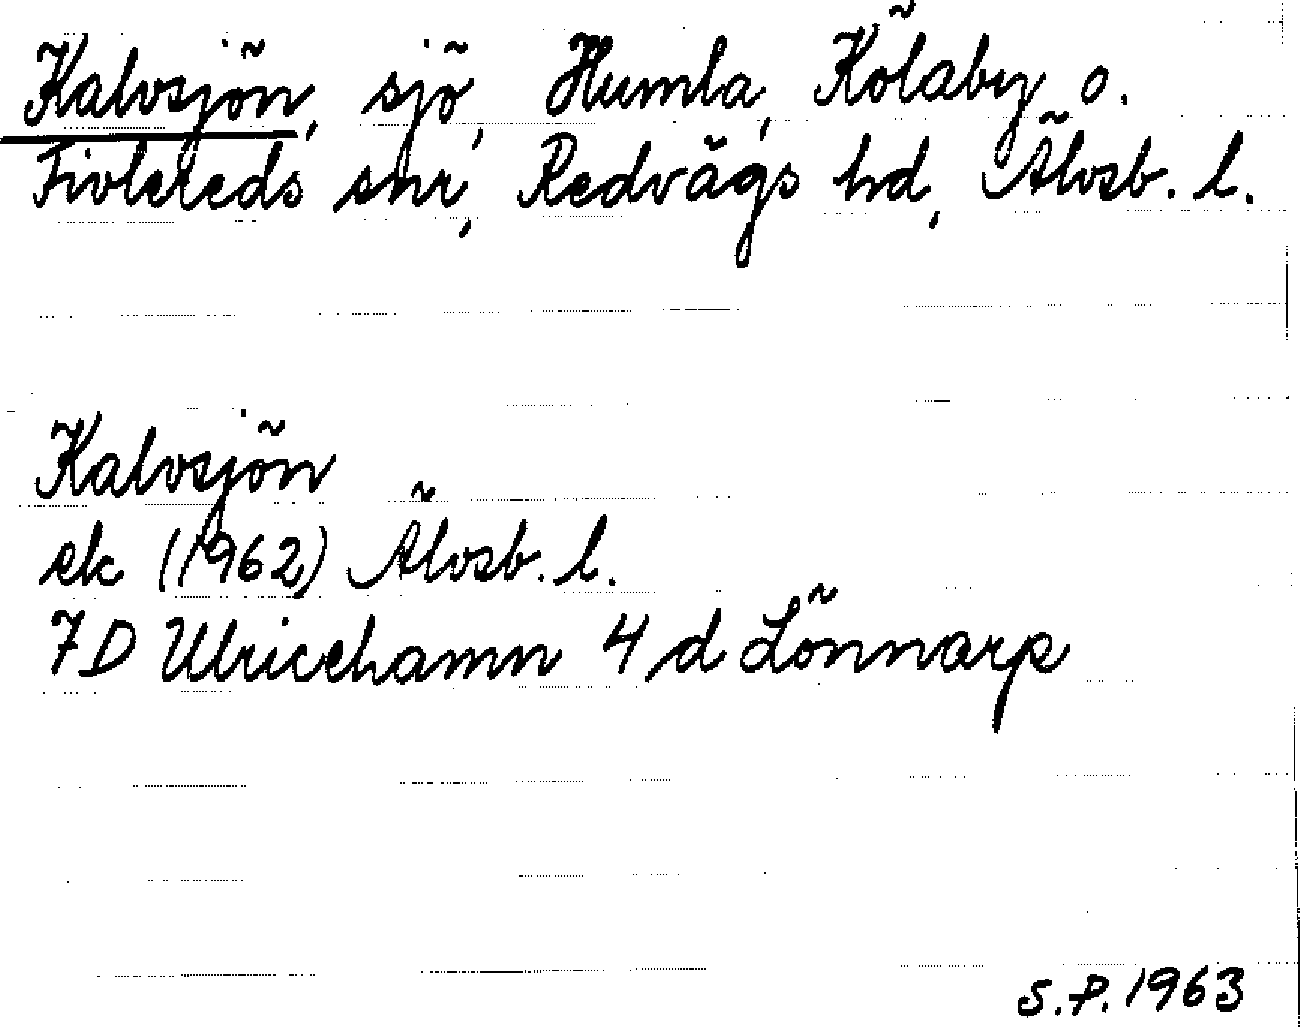 Kalvsjön, sjö, Humla, Kölaby o.
Fivlereds snr, Redvägs hd, Älvsb. l.
Kalvsjön
ek (1962) Älvsb. l.
7D Ulricehamn 4 d Lönnarp
S.P. 1963